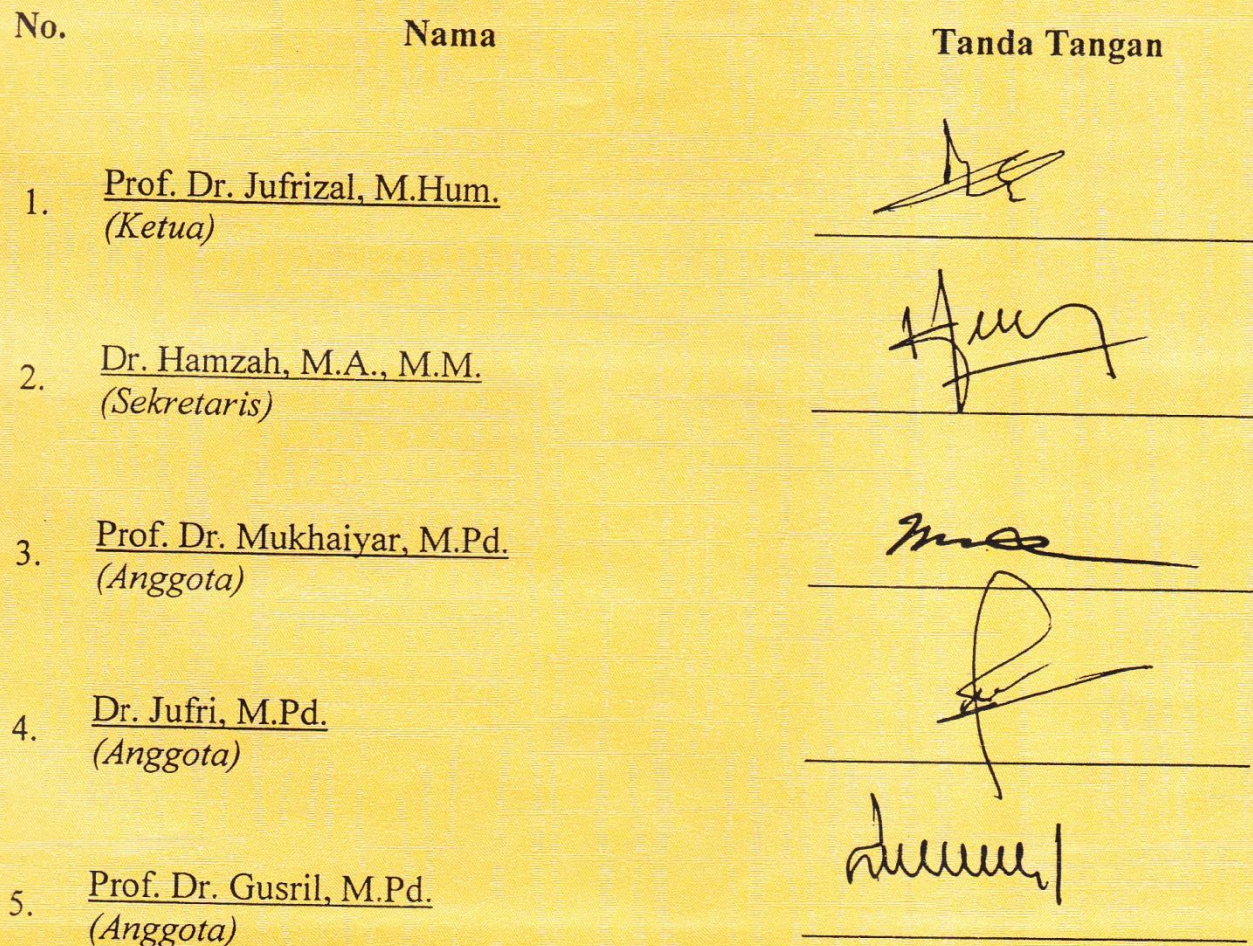 No. Nama Tanda Tangan
1. Prof. Dr. Jufrizal, M.Hum.
(Ketua)
2. Dr. Hamzah, M.A., M.M.
(Sekretaris)
3. Prof. Dr. Mukhaiyar, M.Pd.
(Anggota)
4. Dr. Jufri, M.Pd.
(Anggota)
5. Prof. Dr. Gusril, M.Pd.
(Anggota)